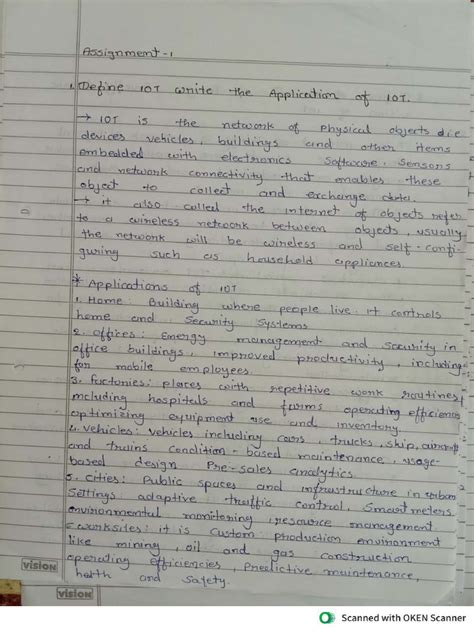 Assignment - 1
1. Define IOT write the Application of IOT.
→ IOT is the network of physical objects d.i.e
devices vehicles, buildings and other items
embedded with electronics software, Sensors
and network connectivity that enables these
object to collect and exchange data.
→ it also called the internet of objects refer
to a wireless network between objects, usually
the network will be wireless and self-confi-
guring such as household appliances.
* Applications of IOT
1. Home: Building where people live. It controls
home and Security Systems
2. offices: Energy management and security in
office buildings, improved productivity, including
for mobile employees.
3. factories: places with repetitive work routines,
including hospitals and farms operating efficiences
optimizing equipment use and inventory.
4. vehicles: vehicles including cars, trucks, ship, aircraft
and trains condition-based maintenance, usage-
based design Pre-sales analytics
5. cities: Public spaces and infrastructure in urban
Settings adaptive traffic control, Smart meters,
environmental monitering, resource management.
6 worksites: it is custom production environment
like mining, oil and gas construction
operating efficiencies, Predictive maintenance,
health and safety.
vision
vision
Scanned with OKEN Scanner